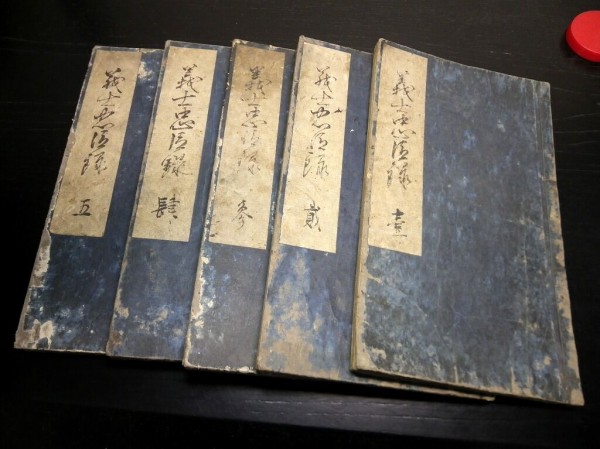 義士忠信録 壹
義士忠信録 貳
義士忠信録 参
義士忠信録 肆
義士忠信録 五